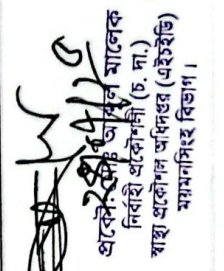 প্রকৌ. মোঃ আব্দুল মালেক
নির্বাহী প্রকৌশলী (চ. দা.)
স্বাস্থ্য প্রকৌশল অধিদপ্তর (এইচইডি)
ময়মনসিংহ বিভাগ।